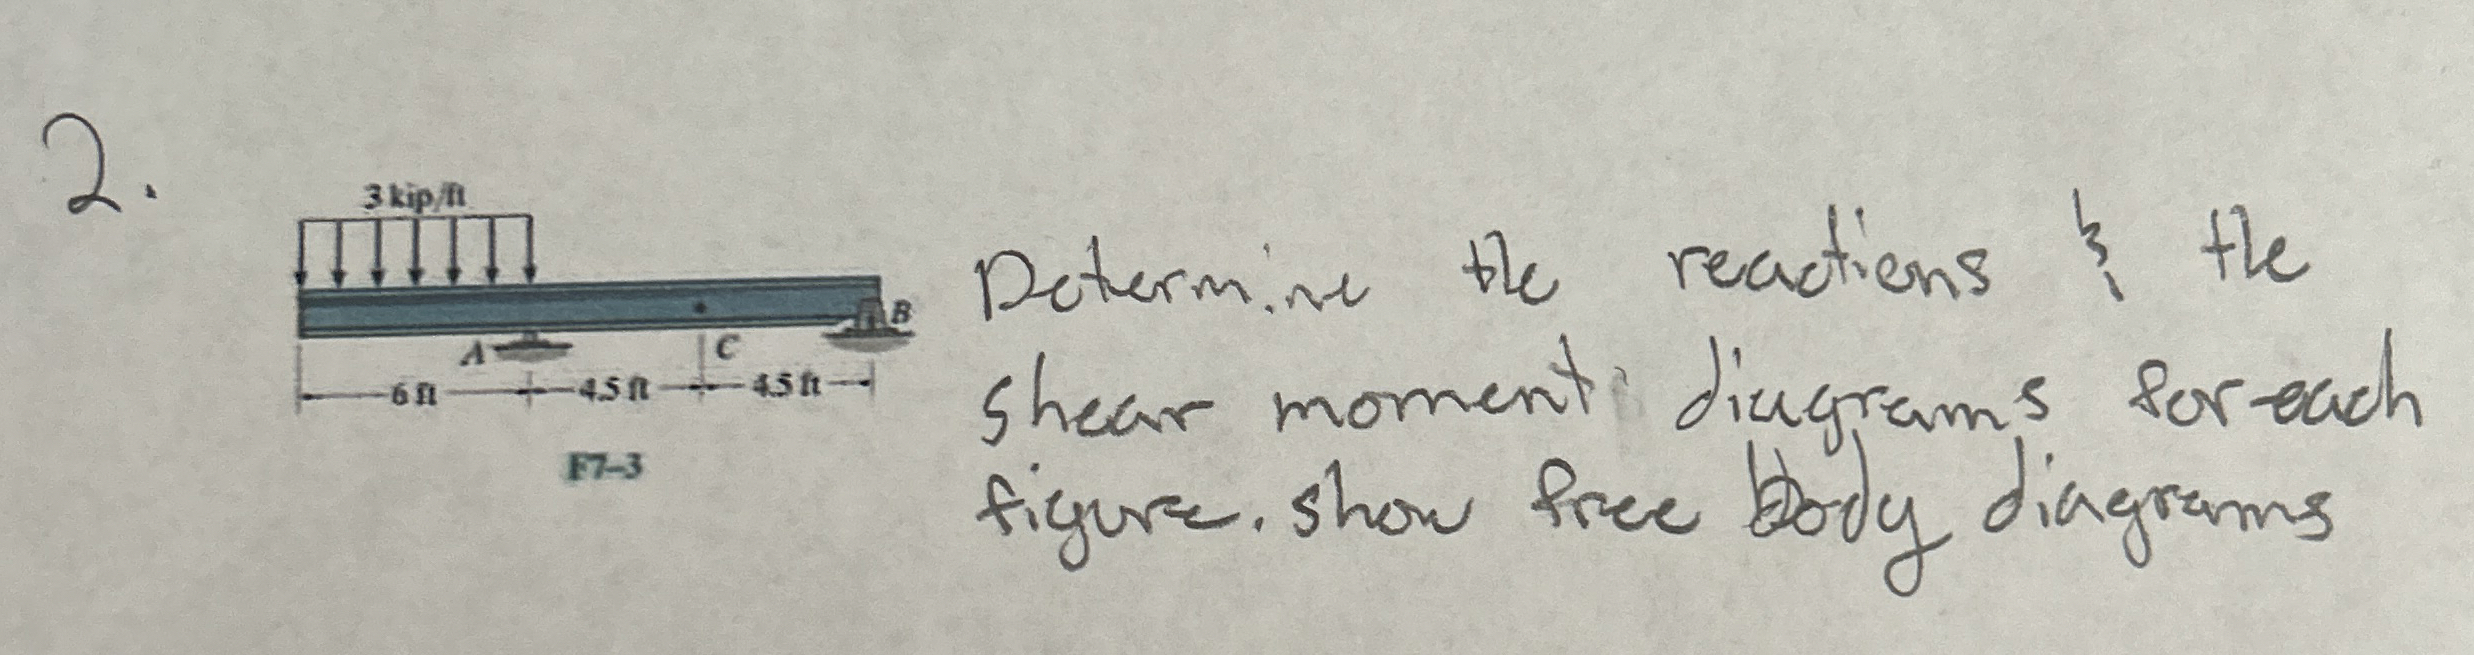 2.
3 kip/ft
A
C
B
6 ft
4.5 ft
4.5 ft
F7–3
Determine the reactions & the
shear moment diagrams for each
figure. show free body diagrams